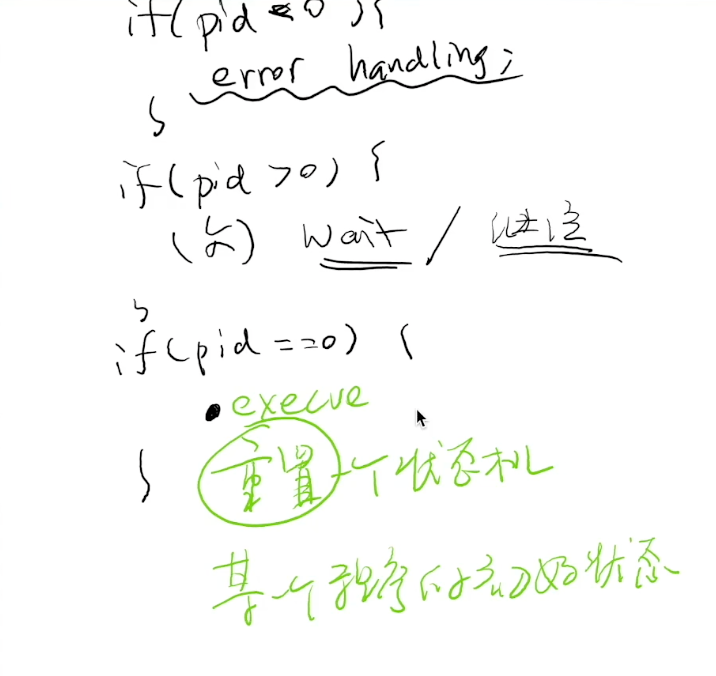 if(pid < 0 ){
error handling;
}
if(pid >0) {
(父) wait /
}
if(pid ==0) {
• execve
重置一个状态机
}
某个程序的初始状态